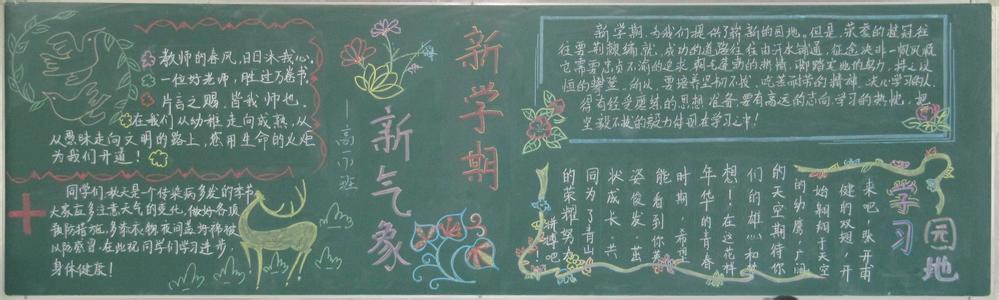 教师的春风,日日沐我心。
一位好老师,胜过万卷书。
片言之赐,皆我师也。
在我们从幼稚走向成熟,从
从愚昧走向文明的路上,您用生命的火炬
为我们开道!
同学们:秋天是个传染病多发的季节
大家应多注意天气的变化,做好各项
预防措施。多
以防感冒。在此祝同学们学习进步,
身体健康!
新学期
新气象
——高尔班
新学期,为我们提供了崭新的园地。但是,荣誉的桂冠往
往要荆棘编就,成功的道路往往由汗水铺通,征途决非一帆风顺
它需要忠贞不渝的追求,
恒的攀登。所以,要培养坚韧不拔、吃苦耐劳的精神,决心学习的人
得有经受磨练的思想准备,要有高远的志向,学习的热忱,把
坚毅不拔的毅力体现在学习之中!
学习
园地
来吧,张开
健的双翅,开
始翱翔于天空
的幼鹰,广阔
的天空期待你
们的雄心和梦
想!在这花样
年华的青春
时期,希望
能看到你英
姿俊发,茁
状成长,共
同为了青山
的荣耀努力
拼搏吧!